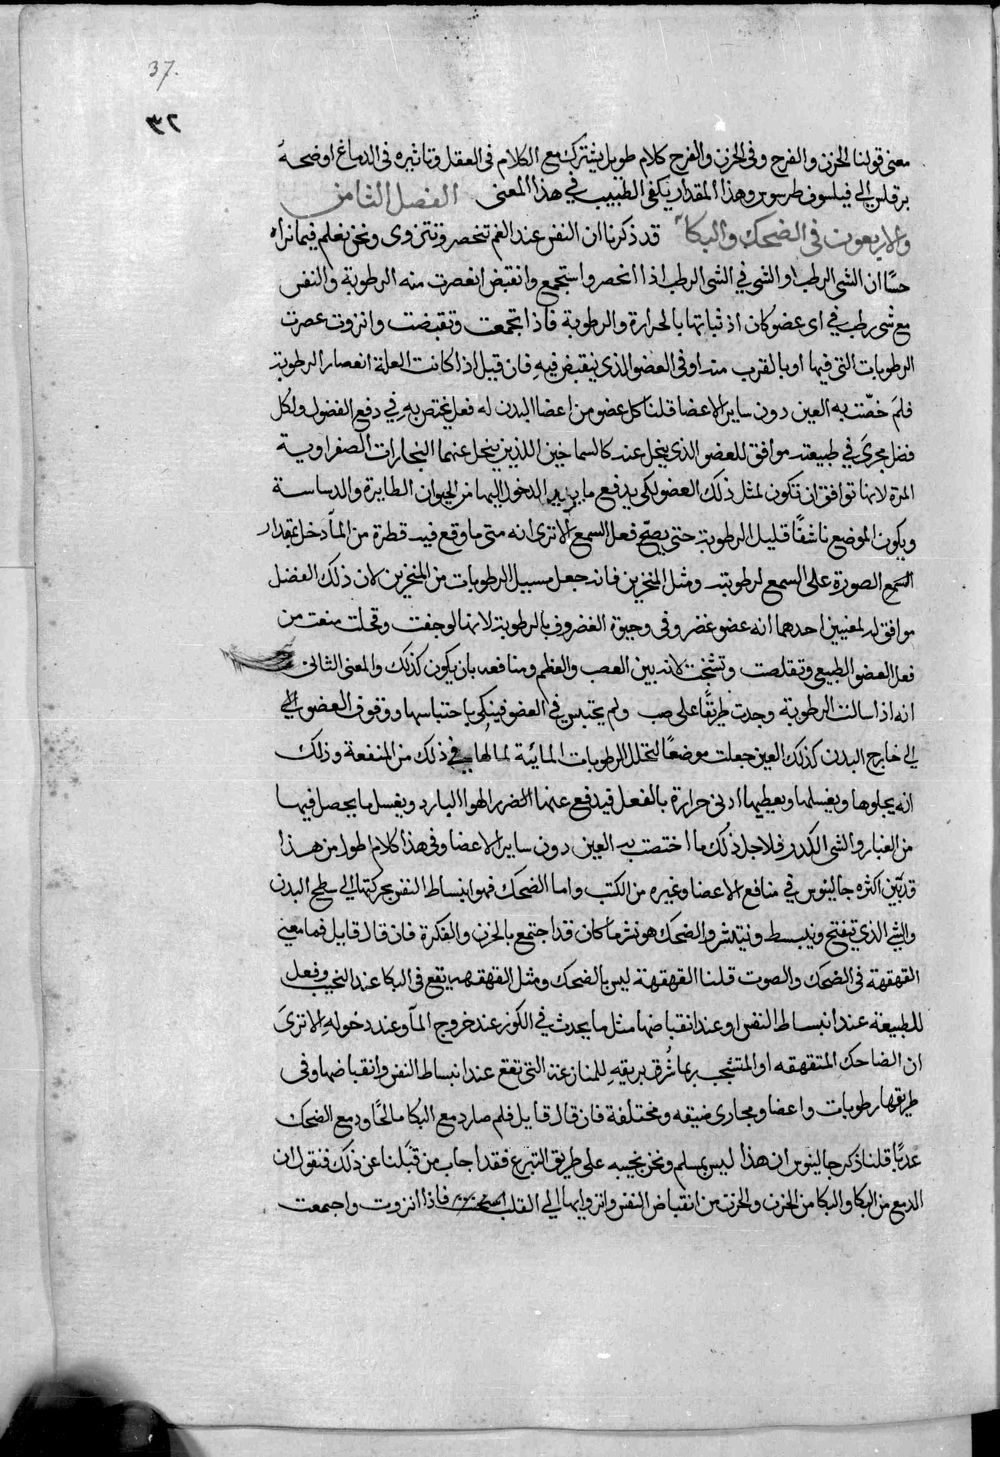 37.
٣٢
معنى قولنا الحزن والفرح وفى الحزن والفرح كلام طويل يشترك مع الكلام فى العقل وتاثيره فى الدماغ اوضحه
برقلس الى فيلسوف طرسوس وهذا المقدار يكفى الطبيب في هذا المعنى الفصل الثامن
والاربعون فى الضحك والبكا قد ذكرنا ان النفس عند الغم تنحصر وتنزوى ونحن نعلم فيما نراه
حسًا ان الشى الرطب او الشى في الشى الرطب اذا انحصر واستجمع وانقبض انعصرت منه الرطوبة والنفس
مع شى رطب في اى عضو كان اذ ثباتها بالحرارة والرطوبة فاذا تجمعت وتقبضت وانزوت عصرت
الرطوبات التى فيها او بالقرب منه او فى العضو الذى ينقبض فيه فان قيل اذا كانت العلة انعصار الرطوبة
فلمَ خصّت به العين دون ساير الاعضا قلنا كل عضو من اعضا البدن له فعل يختص به في دفع الفضول ولكل
فضل مجرىً في طبيعته موافق للعضو الذى ينحل عنه كالسماخين اللذين ينحل عنهما البخارات الصفراوية
المرة لانها توافق ان تكون لمثل ذلك العضو لكى يدفع ما يريد الدخول اليها من الحيوان الطايرة والدساسة
ويكون الموضع ناشفًا قليل الرطوبة حتى يصحّ فعل السمع الا ترى انه متى ما وقع فيه قطرة من الما دخل بمقدار
السمع الصورة على السمع لرطوبته ومثل المنخرين فانه جعل مسيل الرطوبات من المنخرين لان ذلك الفضل
موافق له لمعنيين احدهما انه عضو غضروفى وحيوة الغضروف بالرطوبة لانها لو جفت وقحلت منعت من
فعل العضو الطبيعى وتقلصت وتشنجت لانه بين العصب والعظم ومنافعه بان يكون كذلك والمعنى الثانى
انه اذا سالت الرطوبة وجدت طريقًا على صب ولم يحتبس فى العضو فينكى باحتباسها ووقوف العضو الى
الى خارج البدن كذلك العين جعلت موضعًا لتحلل الرطوبات المائية لما لها في ذلك من المنفعة وذلك
انه يجلوها ويغسلها ويعطيها ادنى حرارة بالفعل فيدفع عنها الضرر الهوا البارد ويغسل ما يحصل فيها
من الغبار والشى الكدر فلاجل ذلك ما اختصت به العين دون ساير الاعضا وفى هذا كلام اطول من هذا
قد بيّن اكثره جالينوس في منافع الاعضا وغيره من الكتب واما الضحك فهو انبساط النفس بحركتها الى سطح البدن
والشى الذي يتفتح وينبسط وينتشر والضحك هو نشر ما كان قد اجتمع بالحزن والفكرة فان قال قايل فما معنى
القهقهة فى الضحك والصوت قلنا القهقهة ليس بالضحك ومثل القهقهه يقع فى البكا عند النحيب وفعل
للطبيعة عند انبساط النفس او عند انقباضها مثل ما يحدث في الكوز عند خروج المآ وعند دخوله الا ترىَ
ان الضاحك المتقهقه او المنتحب ربما شرق بريقه للمنازعة التى تقع عند انبساط النفس وانقباضها وفى
طريقها رطوبات واعضا ومجارى ضيقه ومختلفة فان قال قايل فلم صار دمع البكا مالحًا ودمع الضحك
عذبًا قلنا ذكر جالينوس ان هذا ليس بمسلم ونحن نجيبه على طريق التبرع فقد اجاب من قبلنا عن ذلك فنقول ان
الدمع من البكا والبكا من الحزن والحزن من انقباض النفس وانزوايها الى القلب فاذا انزوت واجتمعت